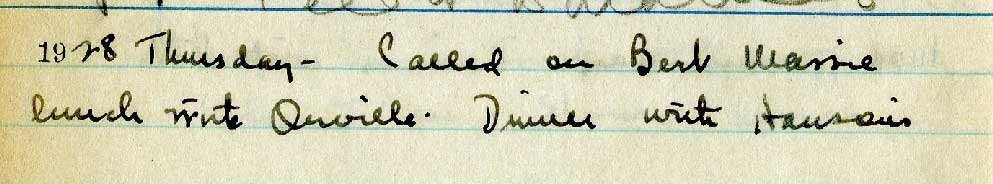 1928 Thursday - Called on Bert Massie
lunch with Orville. Dinner with Hansons